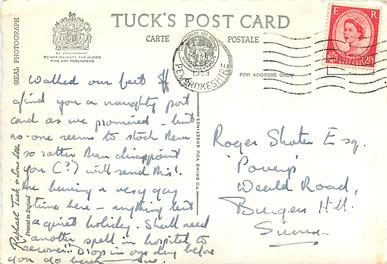 TUCK'S POST CARD
CARTE POSTALE
REAL PHOTOGRAPH
BY APPOINTMENT
TO HER MAJESTY THE QUEEN
FINE ART PUBLISHERS
PEMBROKESHIRE
1958
E R
FOR ADDRESS ONLY
Walked our feet off
to find you a naughty post
card as we promised, but
no-one seems to stock them
so rather than disappoint
you (?) will send this!.
Are having a very gay
time here - anything but
a quiet holiday. Shall need
another spell in hospital to
recover. Drop in one day before
you go back Sue.
Roger Shoter Esq.
Weald Road,
Burgess Hill.
Sussex
Raphael Tuck & Sons Ltd.